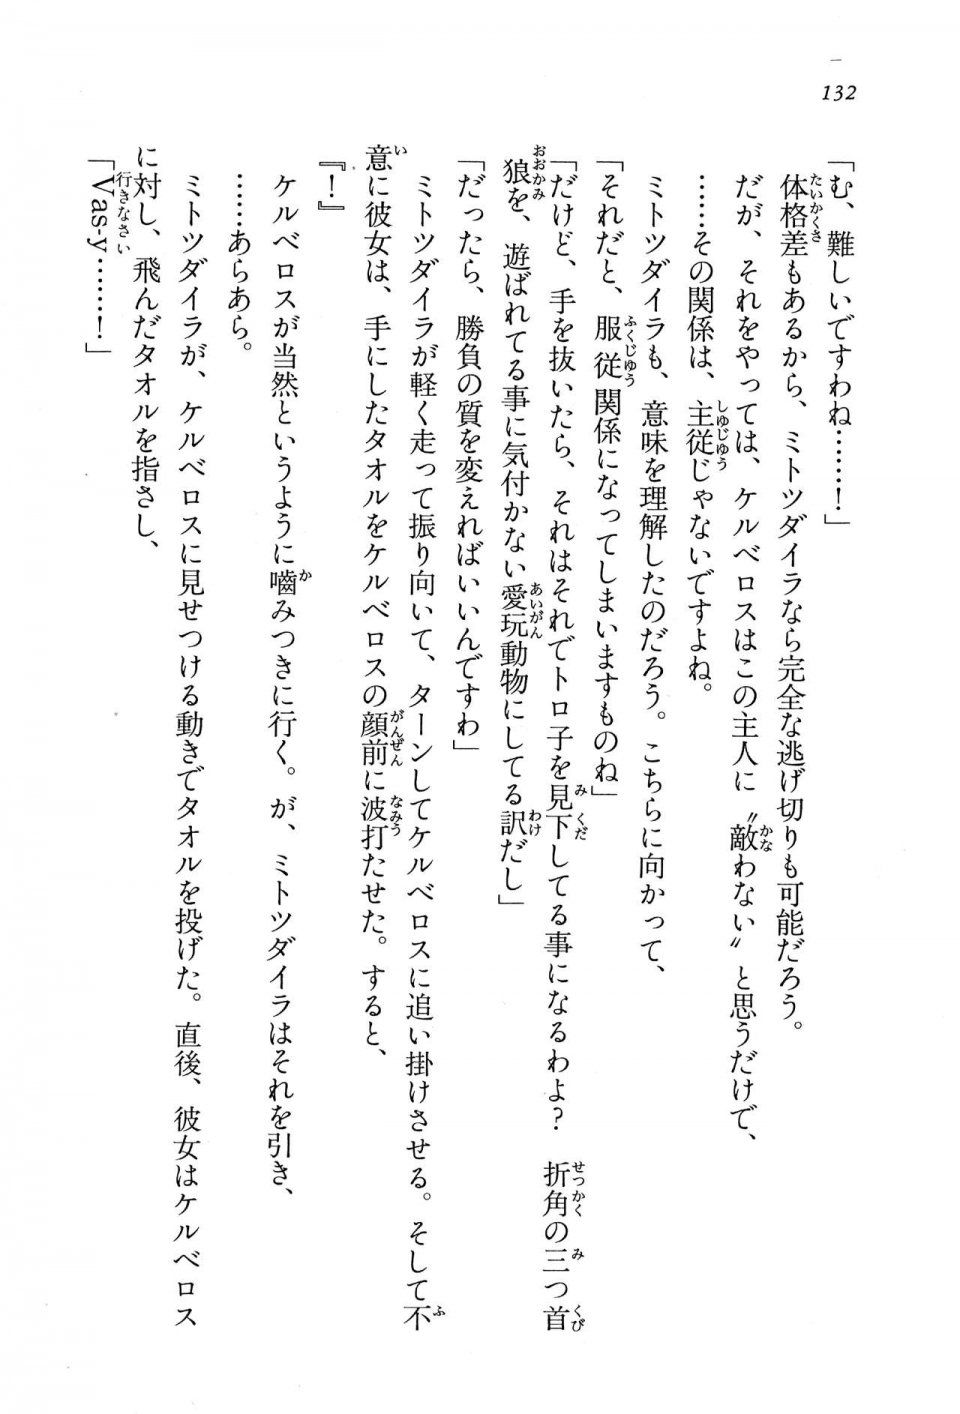 132
「む、難しいですわね……！」
体格差もあるから、ミトツダイラなら完全な逃げ切りも可能だろう。
だが、それをやっては、ケルベロスはこの主人に〝敵わない〟と思うだけで、
……その関係は、主従じゃないですよね。
ミトツダイラも、意味を理解したのだろう。こちらに向かって、
「それだと、服従関係になってしまいますものね」
「だけど、手を抜いたら、それはそれでトロ子を見下してる事になるわよ？　折角の三つ首
狼を、遊ばれてる事に気付かない愛玩動物にしてる訳だし」
「だったら、勝負の質を変えればいいんですわ」
ミトツダイラが軽く走って振り向いて、ターンしてケルベロスに追い掛けさせる。そして不
意に彼女は、手にしたタオルをケルベロスの顔前に波打たせた。すると、
『！』
ケルベロスが当然というように嚙みつきに行く。が、ミトツダイラはそれを引き、
……あらあら。
ミトツダイラが、ケルベロスに見せつける動きでタオルを投げた。直後、彼女はケルベロス
に対し、飛んだタオルを指さし、
「Vas-y行きなさい……！」